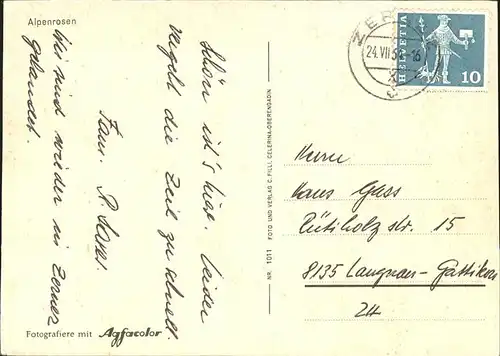 Alpenrosen
Wir sind wieder in Zernez
gelandet.
Schön ist's hier. Leider
vergeht die Zeil zu schnell.
Fam. R.
Fotografiere mit Agfacolor
NR. 1011 FOTO UND VERLAG C. FILLI, CELERINA-OBERENGADIN
ZER
24.VII.6 -16
HELVETIA
10
Herrn
Hans Gass
Rütiholz str. 15
8135 Langnau-Gattikon
ZH